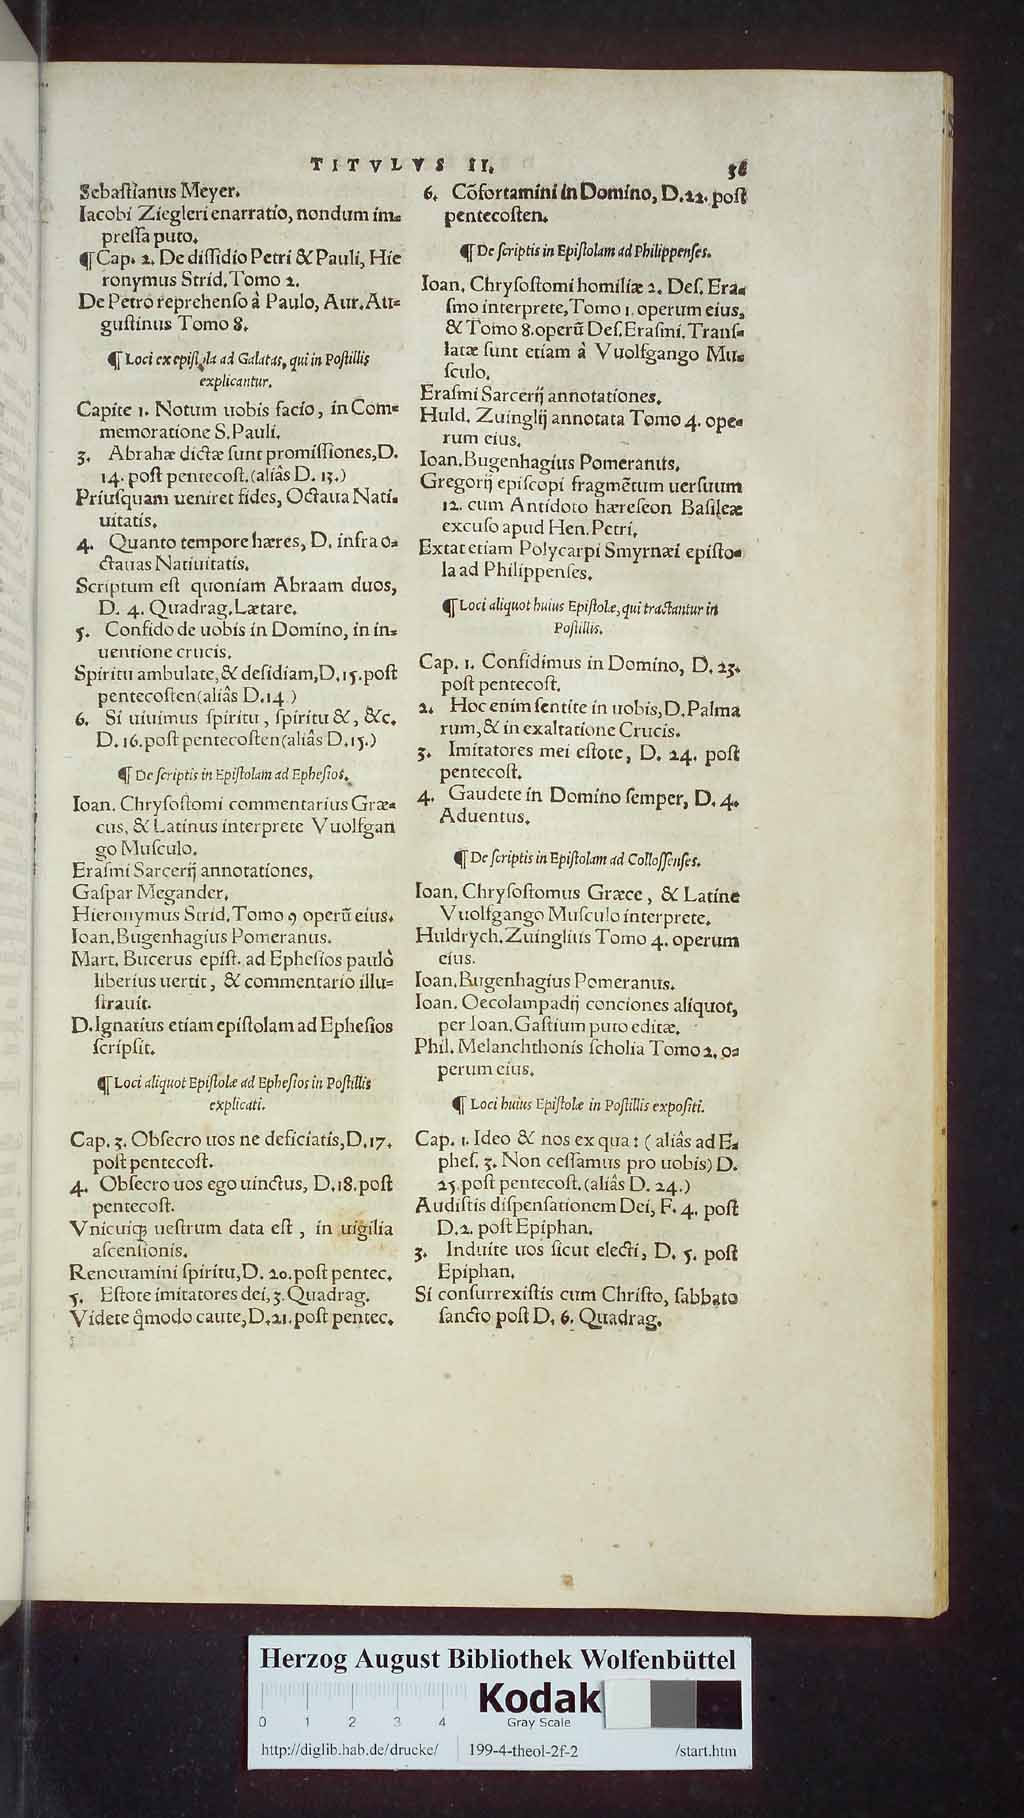 TITVLVS II. 36
Sebaſtianus Meyer.
Iacobi Ziegleri enarratio, nondum im-
preſſa puto.
¶ Cap. 2. De diſſidio Petri & Pauli, Hie
ronymus Strid. Tomo 2.
De Petro reprehenſo à Paulo, Aur. Au-
guſtinus Tomo 8.
¶ Loci ex epiſtola ad Galatas, qui in Poſtillis
explicantur.
Capite 1. Notum uobis facio, in Com-
memoratione S. Pauli.
3. Abrahæ dictæ ſunt promiſſiones, D.
14. poſt pentecoſt. (aliâs D. 13.)
Priuſquam ueniret fides, Octaua Nati-
uitatis.
4. Quanto tempore hæres, D. infra o-
ctauas Natiuitatis.
Scriptum eſt quoniam Abraam duos,
D. 4. Quadrag. Lætare.
5. Confido de uobis in Domino, in in-
uentione crucis.
Spiritu ambulate, & deſidiam, D. 15. poſt
pentecoſten (aliâs D. 14.)
6. Si uiuimus ſpiritu, ſpiritu &, &c.
D. 16. poſt pentecoſten (aliâs D. 15.)
¶ De ſcriptis in Epiſtolam ad Epheſios.
Ioan. Chryſoſtomi commentarius Græ-
cus, & Latinus interprete Vuolfgan
go Muſculo.
Eraſmi Sarcerij annotationes.
Gaſpar Megander.
Hieronymus Strid. Tomo 9 operũ eius.
Ioan. Bugenhagius Pomeranus.
Mart. Bucerus epiſt. ad Epheſios paulò
liberius uertit, & commentario illu-
ſtrauit.
D. Ignatius etiam epiſtolam ad Epheſios
ſcripſit.
¶ Loci aliquot Epiſtolæ ad Epheſios in Poſtillis
explicati.
Cap. 3. Obſecro uos ne deficiatis, D. 17.
poſt pentecoſt.
4. Obſecro uos ego uinctus, D. 18. poſt
pentecoſt.
Vnicuiq; ueſtrum data eſt, in uigilia
aſcenſionis.
Renouamini ſpiritu, D. 20. poſt pentec.
5. Eſtote imitatores dei, 3. Quadrag.
Videte q̃modo caute, D. 21. poſt pentec.
6. Cõfortamini in Domino, D. 22. poſt
pentecoſten.
¶ De ſcriptis in Epiſtolam ad Philippenſes.
Ioan. Chryſoſtomi homiliæ 2. Deſ. Era-
ſmo interprete, Tomo 1. operum eius,
& Tomo 8. operũ Deſ. Eraſmi. Tranſ-
latæ ſunt etiam à Vuolfgango Mu-
ſculo.
Eraſmi Sarcerij annotationes.
Huld. Zuinglij annotata Tomo 4. ope-
rum eius.
Ioan. Bugenhagius Pomeranus.
Gregorij epiſcopi fragmẽtum uerſuum
12. cum Antidoto hæreſeon Baſileæ
excuſo apud Hen. Petri.
Extat etiam Polycarpi Smyrnæi epiſto-
la ad Philippenſes.
¶ Loci aliquot huius Epiſtolæ, qui tractantur in
Poſtillis.
Cap. 1. Confidimus in Domino, D. 23.
poſt pentecoſt.
2. Hoc enim ſentite in uobis, D. Palma
rum, & in exaltatione Crucis.
3. Imitatores mei eſtote, D. 24. poſt
pentecoſt.
4. Gaudete in Domino ſemper, D. 4.
Aduentus.
¶ De ſcriptis in Epiſtolam ad Coloſſenſes.
Ioan. Chryſoſtomus Græce, & Latine
Vuolfgango Muſculo interprete.
Huldrych. Zuinglius Tomo 4. operum
eius.
Ioan. Bugenhagius Pomeranus.
Ioan. Oecolampadij conciones aliquot,
per Ioan. Gaſtium puto editæ.
Phil. Melanchthonis ſcholia Tomo 2. o-
perum eius.
¶ Loci huius Epiſtolæ in Poſtillis expoſiti.
Cap. 1. Ideo & nos ex qua: (aliâs ad E-
pheſ. 3. Non ceſſamus pro uobis) D.
25. poſt pentecoſt. (aliâs D. 24.)
Audiſtis diſpenſationem Dei, F. 4. poſt
D. 2. poſt Epiphan.
3. Induite uos ſicut electi, D. 5. poſt
Epiphan.
Si conſurrexiſtis cum Chriſto, ſabbato
ſancto poſt D. 6. Quadrag.
Herzog August Bibliothek Wolfenbüttel
Kodak
0 1 2 3 4 Gray Scale
http://diglib.hab.de/drucke/ 199-4-theol-2f-2 /start.htm